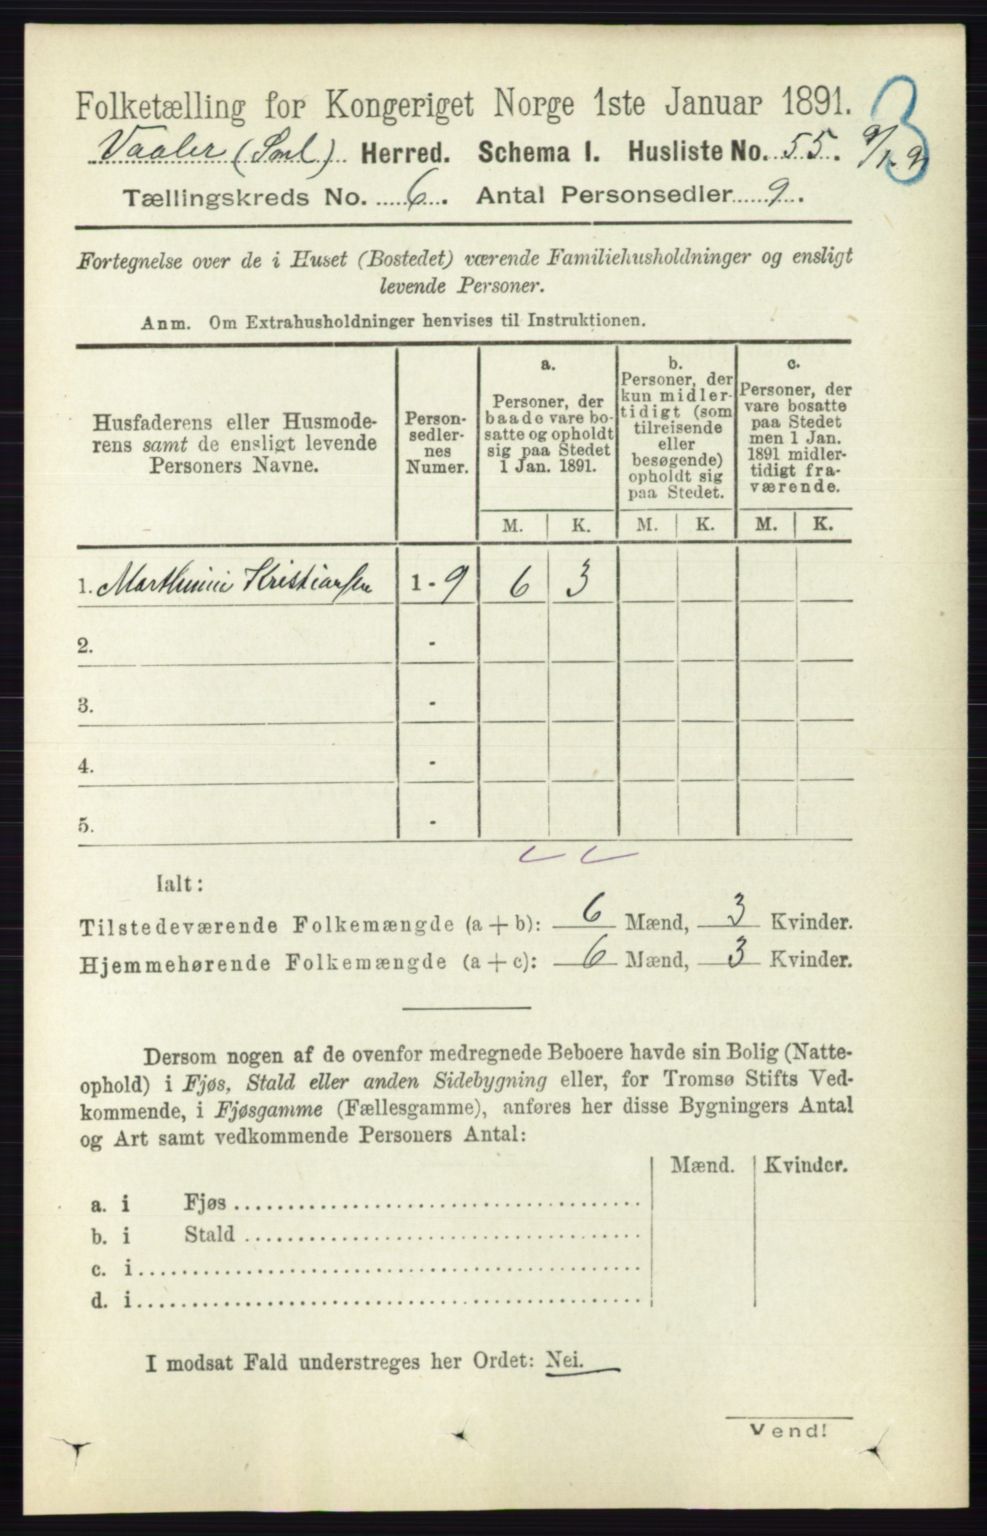 Folketælling for Kongeriget Norge 1ste Januar 1891.
3
Vaaler (Sml) Herred. Schema I. Husliste No. 55.
Tællingskreds No. 6. Antal Personsedler 9.
Fortegnelse over de i Huset (Bostedet) værende Familiehusholdninger og ensligt
levende Personer.
Anm. Om Extrahusholdninger henvises til Instruktionen.
Husfaderens eller Husmode-
rens samt de ensligt levende
Personers Navne.
Person-
sedler-
nes
Numer.
a.
Personer, der
baade vare bo-
satte og opholdt
sig paa Stedet
1 Jan. 1891.
b.
Personer, der
kun midler-
tidigt (som
tilreisende
eller
besøgende)
opholdt sig
paa Stedet.
c.
Personer, der
vare bosatte
paa Stedet
men 1 Jan.
1891 midler-
tidigt fra-
værende.
M. K. M. K. M. K.
1. Kristiansen 1 - 9 6 3
2. -
3. -
4. -
5. -
Ialt:
Tilstedeværende Folkemængde (a + b): 6 Mænd, 3 Kvinder.
Hjemmehørende Folkemængde (a + c): 6 Mænd, 3 Kvinder.
Dersom nogen af de ovenfor medregnede Beboere havde sin Bolig (Natte-
ophold) i Fjøs, Stald eller anden Sidebygning eller, for Tromsø Stifts Ved-
kommende, i Fjøsgamme (Fællesgamme), anføres her disse Bygningers Antal
og Art samt vedkommende Personers Antal:
Mænd. Kvinder.
a. i Fjøs
b. i Stald
c. i
d. i
I modsat Fald understreges her Ordet: Nei.
Vend!